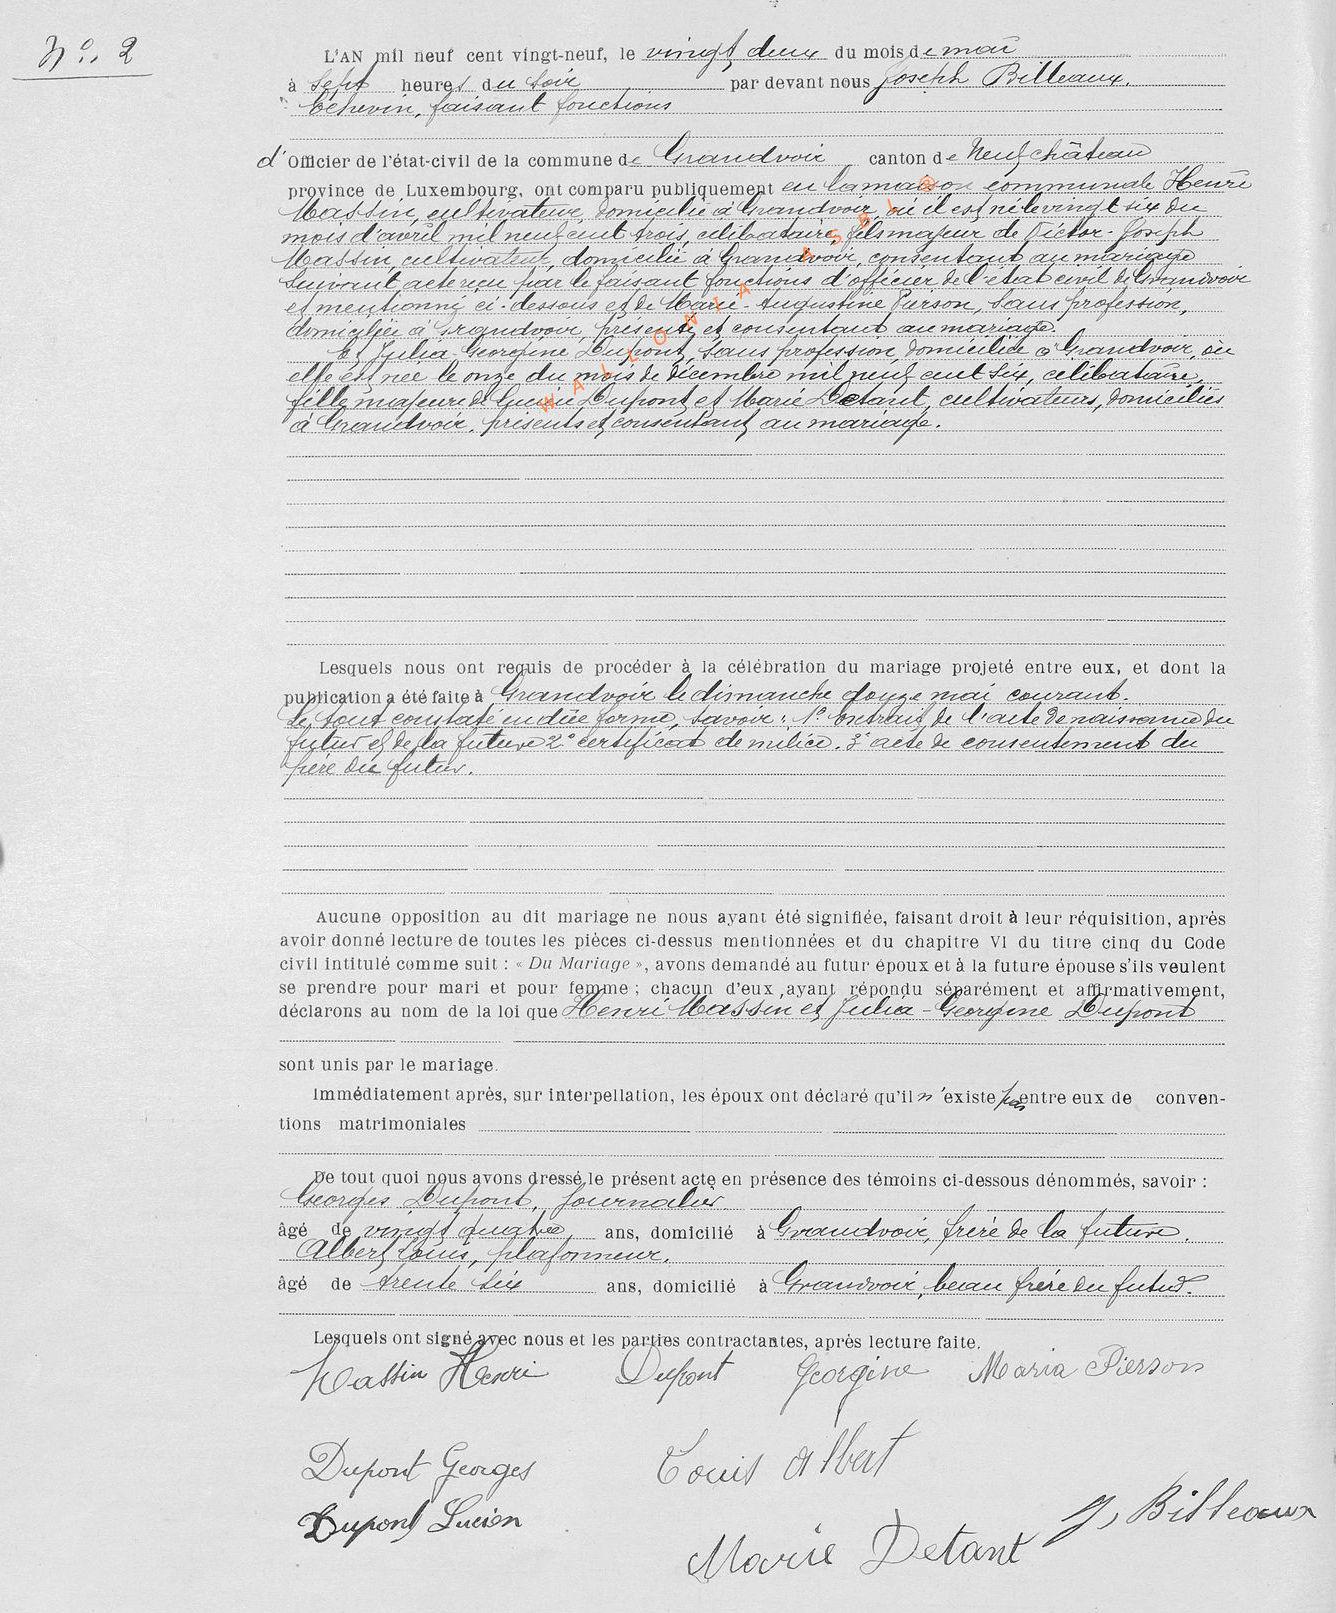 N° 2
L'AN mil neuf cent vingt-neuf, le vingt deux du mois de mai
à sept heures du soir par devant nous Joseph Billeaux,
échevin, faisant fonctions
d'Officier de l'état-civil de la commune de Grandvoir canton de Neufchâteau
province de Luxembourg, ont comparu publiquement en la maison communale Henri
Massin, cultivateur, domicilié à Grandvoir, où il est né le vingt six du
mois d'avril mil neuf cent trois, célibataire, fils majeur de Victor-Joseph
Massin, cultivateur, domicilié à Grandvoir, consentant au mariage
suivant acte reçu par le faisant fonctions d'officier de l'état civil de Grandvoir
et mentionné ci-dessous et de Marie-Augustine Pierson, sans profession,
domiciliée à Grandvoir, présente et consentant au mariage.
Et Julia-Georgine Dupont, sans profession, domiciliée à Grandvoir, où
elle est née le onze du mois de décembre mil neuf cent six, célibataire,
fille majeure de Lucien Dupont et Marie Detant, cultivateurs, domiciliés
à Grandvoir, présents et consentant au mariage.
WALLONIA ASBL @
Lesquels nous ont requis de procéder à la célébration du mariage projeté entre eux, et dont la
publication a été faite à Grandvoir le dimanche douze mai courant.
Le tout constaté en due forme, savoir : 1° extrait de l'acte de naissance du
futur et de la future 2° certificat de milice. 3° acte de consentement du
père du futur.
Aucune opposition au dit mariage ne nous ayant été signifiée, faisant droit à leur réquisition, après
avoir donné lecture de toutes les pièces ci-dessus mentionnées et du chapitre VI du titre cinq du Code
civil intitulé comme suit : « Du Mariage », avons demandé au futur époux et à la future épouse s'ils veulent
se prendre pour mari et pour femme ; chacun d'eux ayant répondu séparément et affirmativement,
déclarons au nom de la loi que Henri Massin et Julia-Georgine Dupont
sont unis par le mariage.
Immédiatement après, sur interpellation, les époux ont déclaré qu'il n'existe pas entre eux de conven-
tions matrimoniales
De tout quoi nous avons dressé le présent acte en présence des témoins ci-dessous dénommés, savoir :
Georges Dupont, journalier
âgé de vingt quatre ans, domicilié à Grandvoir, frère de la future.
Albert Louis, plafonneur,
âgé de trente six ans, domicilié à Grandvoir, beau frère du futur.
Lesquels ont signé avec nous et les parties contractantes, après lecture faite.
Massin Henri Dupont Georgine Maria Pierson
Dupont Georges Louis Albert
Dupont Lucien J. Billeaux
Marie Detant